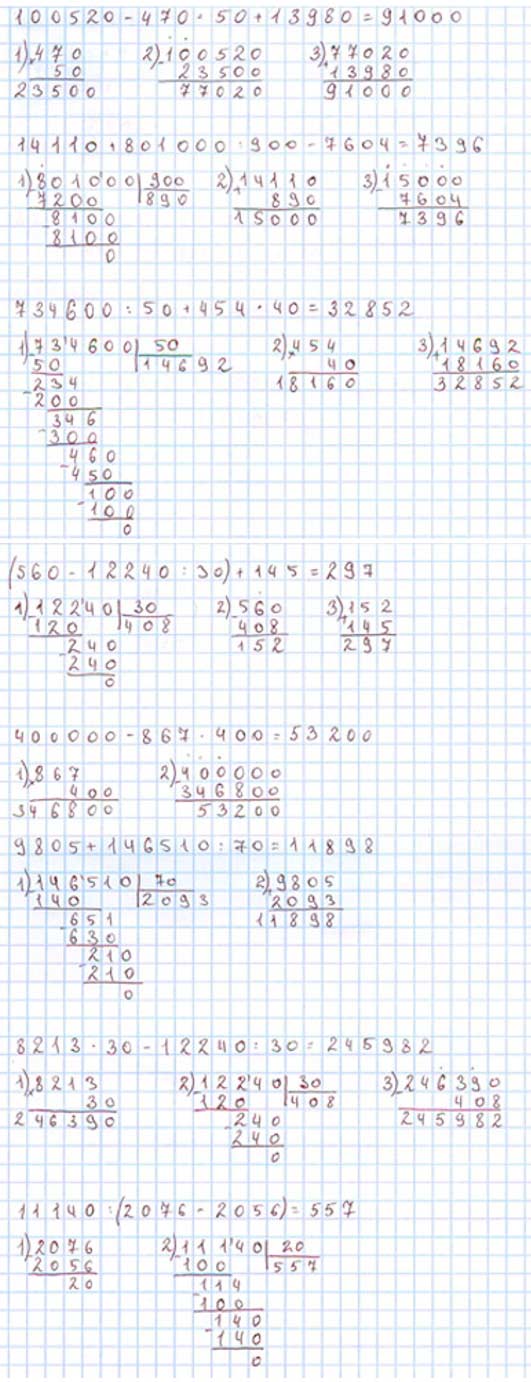 100520 - 470 · 50 + 13980 = 91000
1) × 470 2) - 100520 3) + 77020
50 23500 13980
23500 77020 91000
14110 + 801000 : 900 - 7604 = 7396
1) - 801000 | 900 2) + 14110 3) - 15000
7200 | 890 890 7604
- 8100 15000 7396
8100
0
734600 : 50 + 454 · 40 = 32852
1) - 734600 | 50 2) × 454 3) + 14692
50 | 14692 40 18160
- 234 18160 32852
200
- 346
300
- 460
450
- 100
100
0
(560 - 12240 : 30) + 145 = 297
1) - 12240 | 30 2) - 560 3) + 152
120 | 408 408 145
- 240 152 297
240
0
400000 - 867 · 400 = 53200
1) × 867 2) - 400000
400 346800
346800 53200
9805 + 146510 : 70 = 11898
1) - 146510 | 70 2) + 9805
140 | 2093 2093
- 651 11898
630
- 210
210
0
8213 · 30 - 12240 : 30 = 245982
1) × 8213 2) - 12240 | 30 3) - 246390
30 120 | 408 408
246390 - 240 245982
240
0
11140 : (2076 - 2056) = 557
1) - 2076 2) - 11140 | 20
2056 100 | 557
20 - 114
100
- 140
140
0